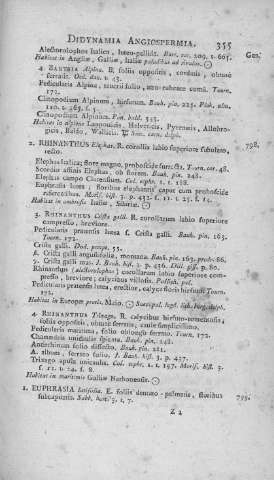 DIDYNAMIA ANGIOSPERMIA. 355
Alectorolophos Italica, luteo-pallida. Barr. rar. 209. t. 665. Gen.
Habitat in Angliæ, Galliæ, Italiæ paludibus ad rivulos.
4. BARTSIA Alpina. B. foliis oppositis, cordatis, obtuse
serratis.
Pedicularis Alpina, teucrii folio, atro-rubente coma. Tourn.
172.
Clinopodium Alpinum, hirsutum. Bauh. pin. 225. Pluk. alm.
Clinopodium Alpinum. Pon. bald. 343.
Habitat in alpibus Lapponicis, Helveticis, Pyrenaeis, Allobrogicis, Baldo, Walliæ.
2. RHINANTHUS Elephas. R. corollis labio superiore subulato, 798.
recto.
Elephas Italica; flore magno, proboscide surrecta. Tourn. cor. 48.
Scordio affinis Elephas, ob florem. Bauh. pin. 248.
Elephas campo Clarensium. Col. ecphr. 1. t. 188.
Euphrasia lutea, floribus elephantis caput cum proboscide
Habitat in umbrosis Italiæ, Sibiriæ.
3. RHINANTHUS Crista galli. R. corollarum labio superiore
compresso, breviore.
Pedicularis pratensis lutea s. Crista galli. Bauh. pin. 163.
Tourn. 172.
Crista galli. Dod. pempt. 55.
β. Crista galli angustifolia, montana. Bauh. pin. 163. prodr. 86.
Rhinanthus (alectorolophus) corollarum labio superiore compresso, breviore; calycibus villosis. Pollich. pal.
Pedicularis pratensis lutea, erectior, calyce floris hirsuto. Tourn.
172.
Habitat in Europæ pratis. Maio.
4. RHINANTHUS Trixago. R. calycibus hirsuto-tomentosis,
foliis oppositis, obtuse serratis, caule simplicissimo.
Pedicularis maritima, folio oblongo serrato. Tourn. 172.
Chamædris unidentis spicata. Bauh. pin. 248.
Antirrhinum folio dissecto. Bauh. pin. 211.
A. album, serrato folio. J. Bauh. hist. 3. p. 437.
Trixago apula unicaulis. Col. ecphr. 1. t. 197. Moris. hist. 3.
f. 11. t. 24. f. 8.
Habitat in maritimis Galliæ Narbonensis.
1. EUPHRASIA latifolia. E. foliis dentato-palmatis, floribus 799.
subcapitatis. Sabb. hort. 3. t. 7.
Z 2